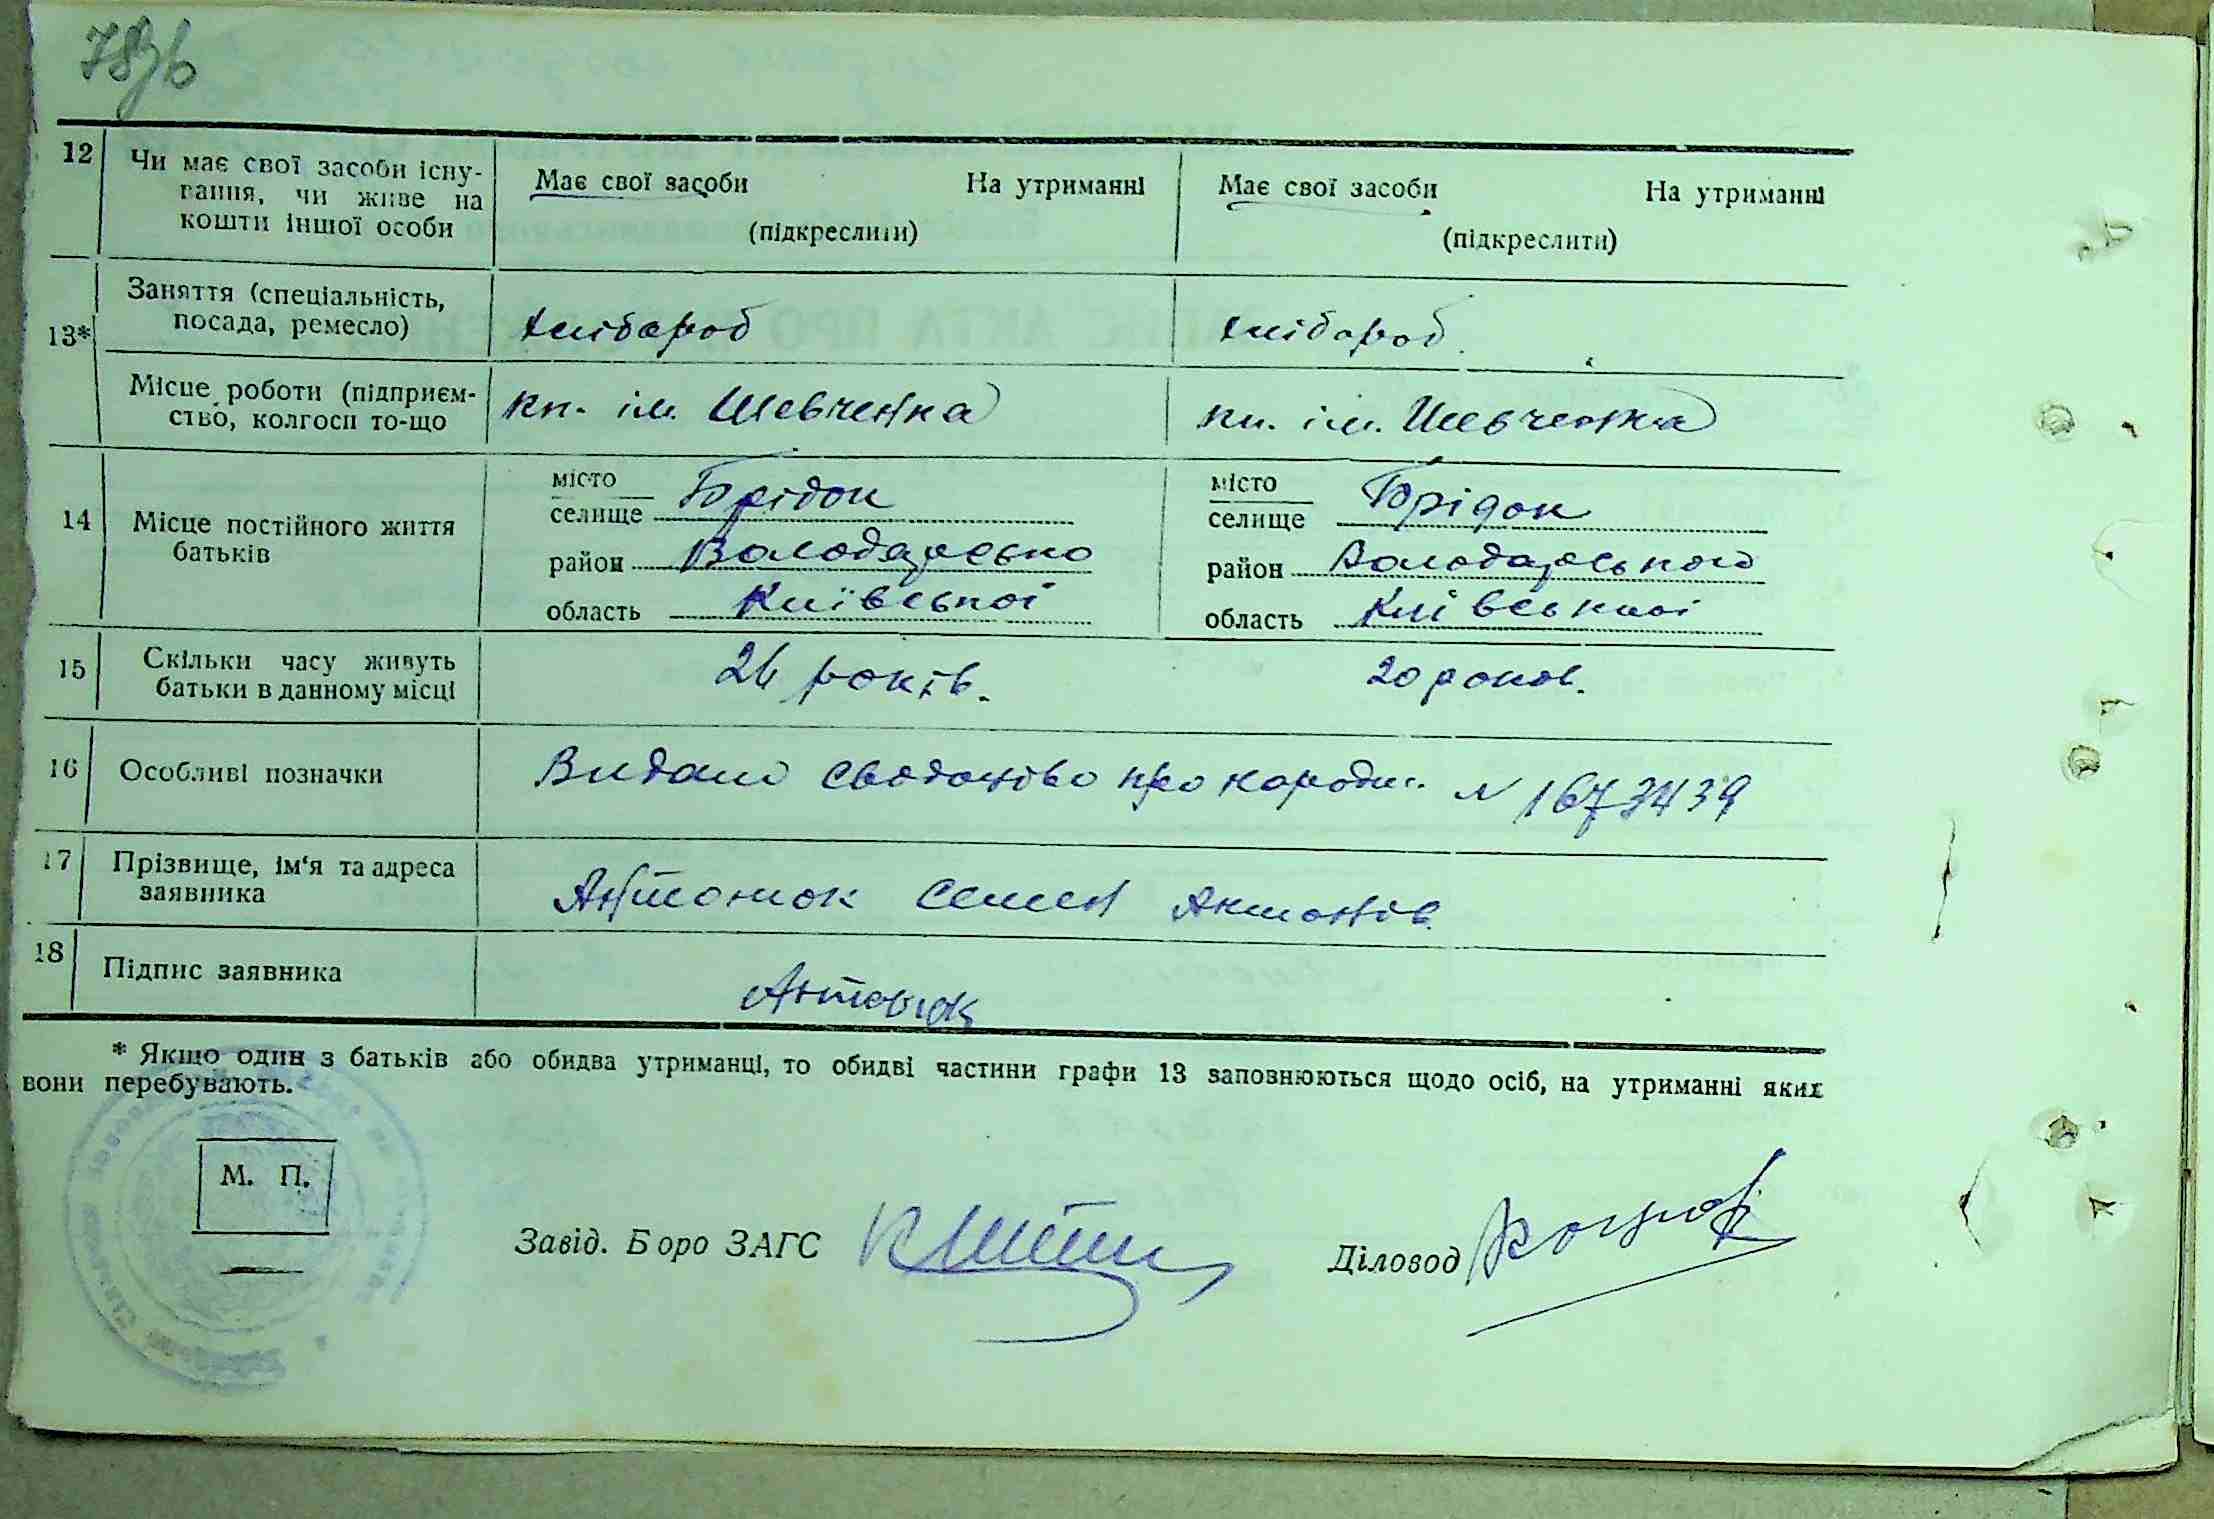 78зв
12 Чи має свої засоби існу- Має свої засоби На утриманні Має свої засоби На утриманні
вання, чи живе на
кошти іншої особи (підкреслити) (підкреслити)
13* Заняття (спеціальність,
посада, ремесло) хлібороб хлібороб.
Місце роботи (підприєм-
ство, колгосп то-що кп. ім. Шевченка кп. ім. Шевченка
14 Місце постійного життя
батьків
місто
селище Брідок місто
селище Брідок
район Володарсько район Володарського
область Київської область Київської
15 Скільки часу живуть
батьки в данному місці 24 років. 20 роков.
16 Особливі позначки Видано свідоцтво про народж. N 1673439
17 Прізвище, ім'я та адреса
заявника Антонюк Семен Антонів.
18 Підпис заявника Антонюк
* Якщо один з батьків або обидва утриманці, то обидві частини графи 13 заповнюються щодо осіб, на утриманні яких
вони перебувають.
М. П.
Завід. Боро ЗАГС
Діловод